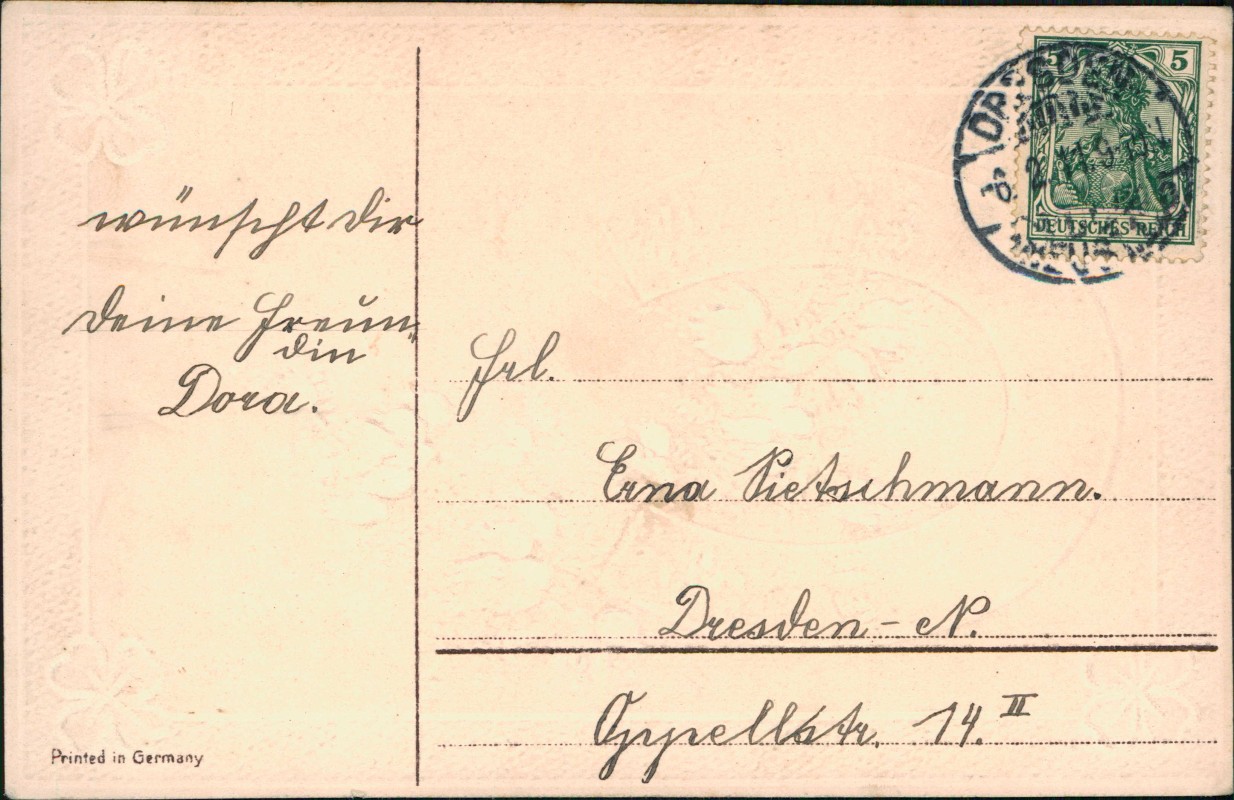 wünscht Dir
Deine Freun„
din
Dora.
Frl.
Erna Pietschmann.
Dresden-N.
Oppellstr. 14. II
Printed in Germany
5 5
DEUTSCHES REICH
DRESDEN